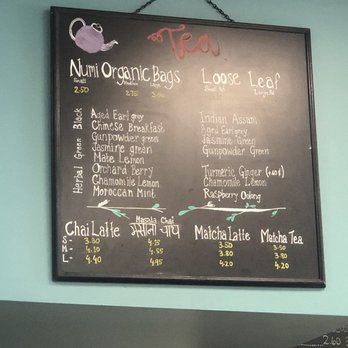 Tea
Numi Organic Bags
Small Medium Large
2.50 2.75 3.00
Black
Green
Herbal
Aged Earl grey
Chinese Breakfast
Gunpowder green
Jasmine green
Mate Lemon
Orchard Berry
Chamomile Lemon
Moroccan Mint
Loose Leaf
Indian Assam
Aged Earl grey
Jasmine Green
Gunpowder Green
Turmeric Ginger
Chamomile Lemon
Raspberry Oolong
Chai Latte
S- 3.30
M- 4.10
L- 4.40
Masala Chai
4.15
4.55
4.95
Matcha Latte
3.50
3.80
4.20
Matcha Tea
3.50
3.80
4.20
2.60